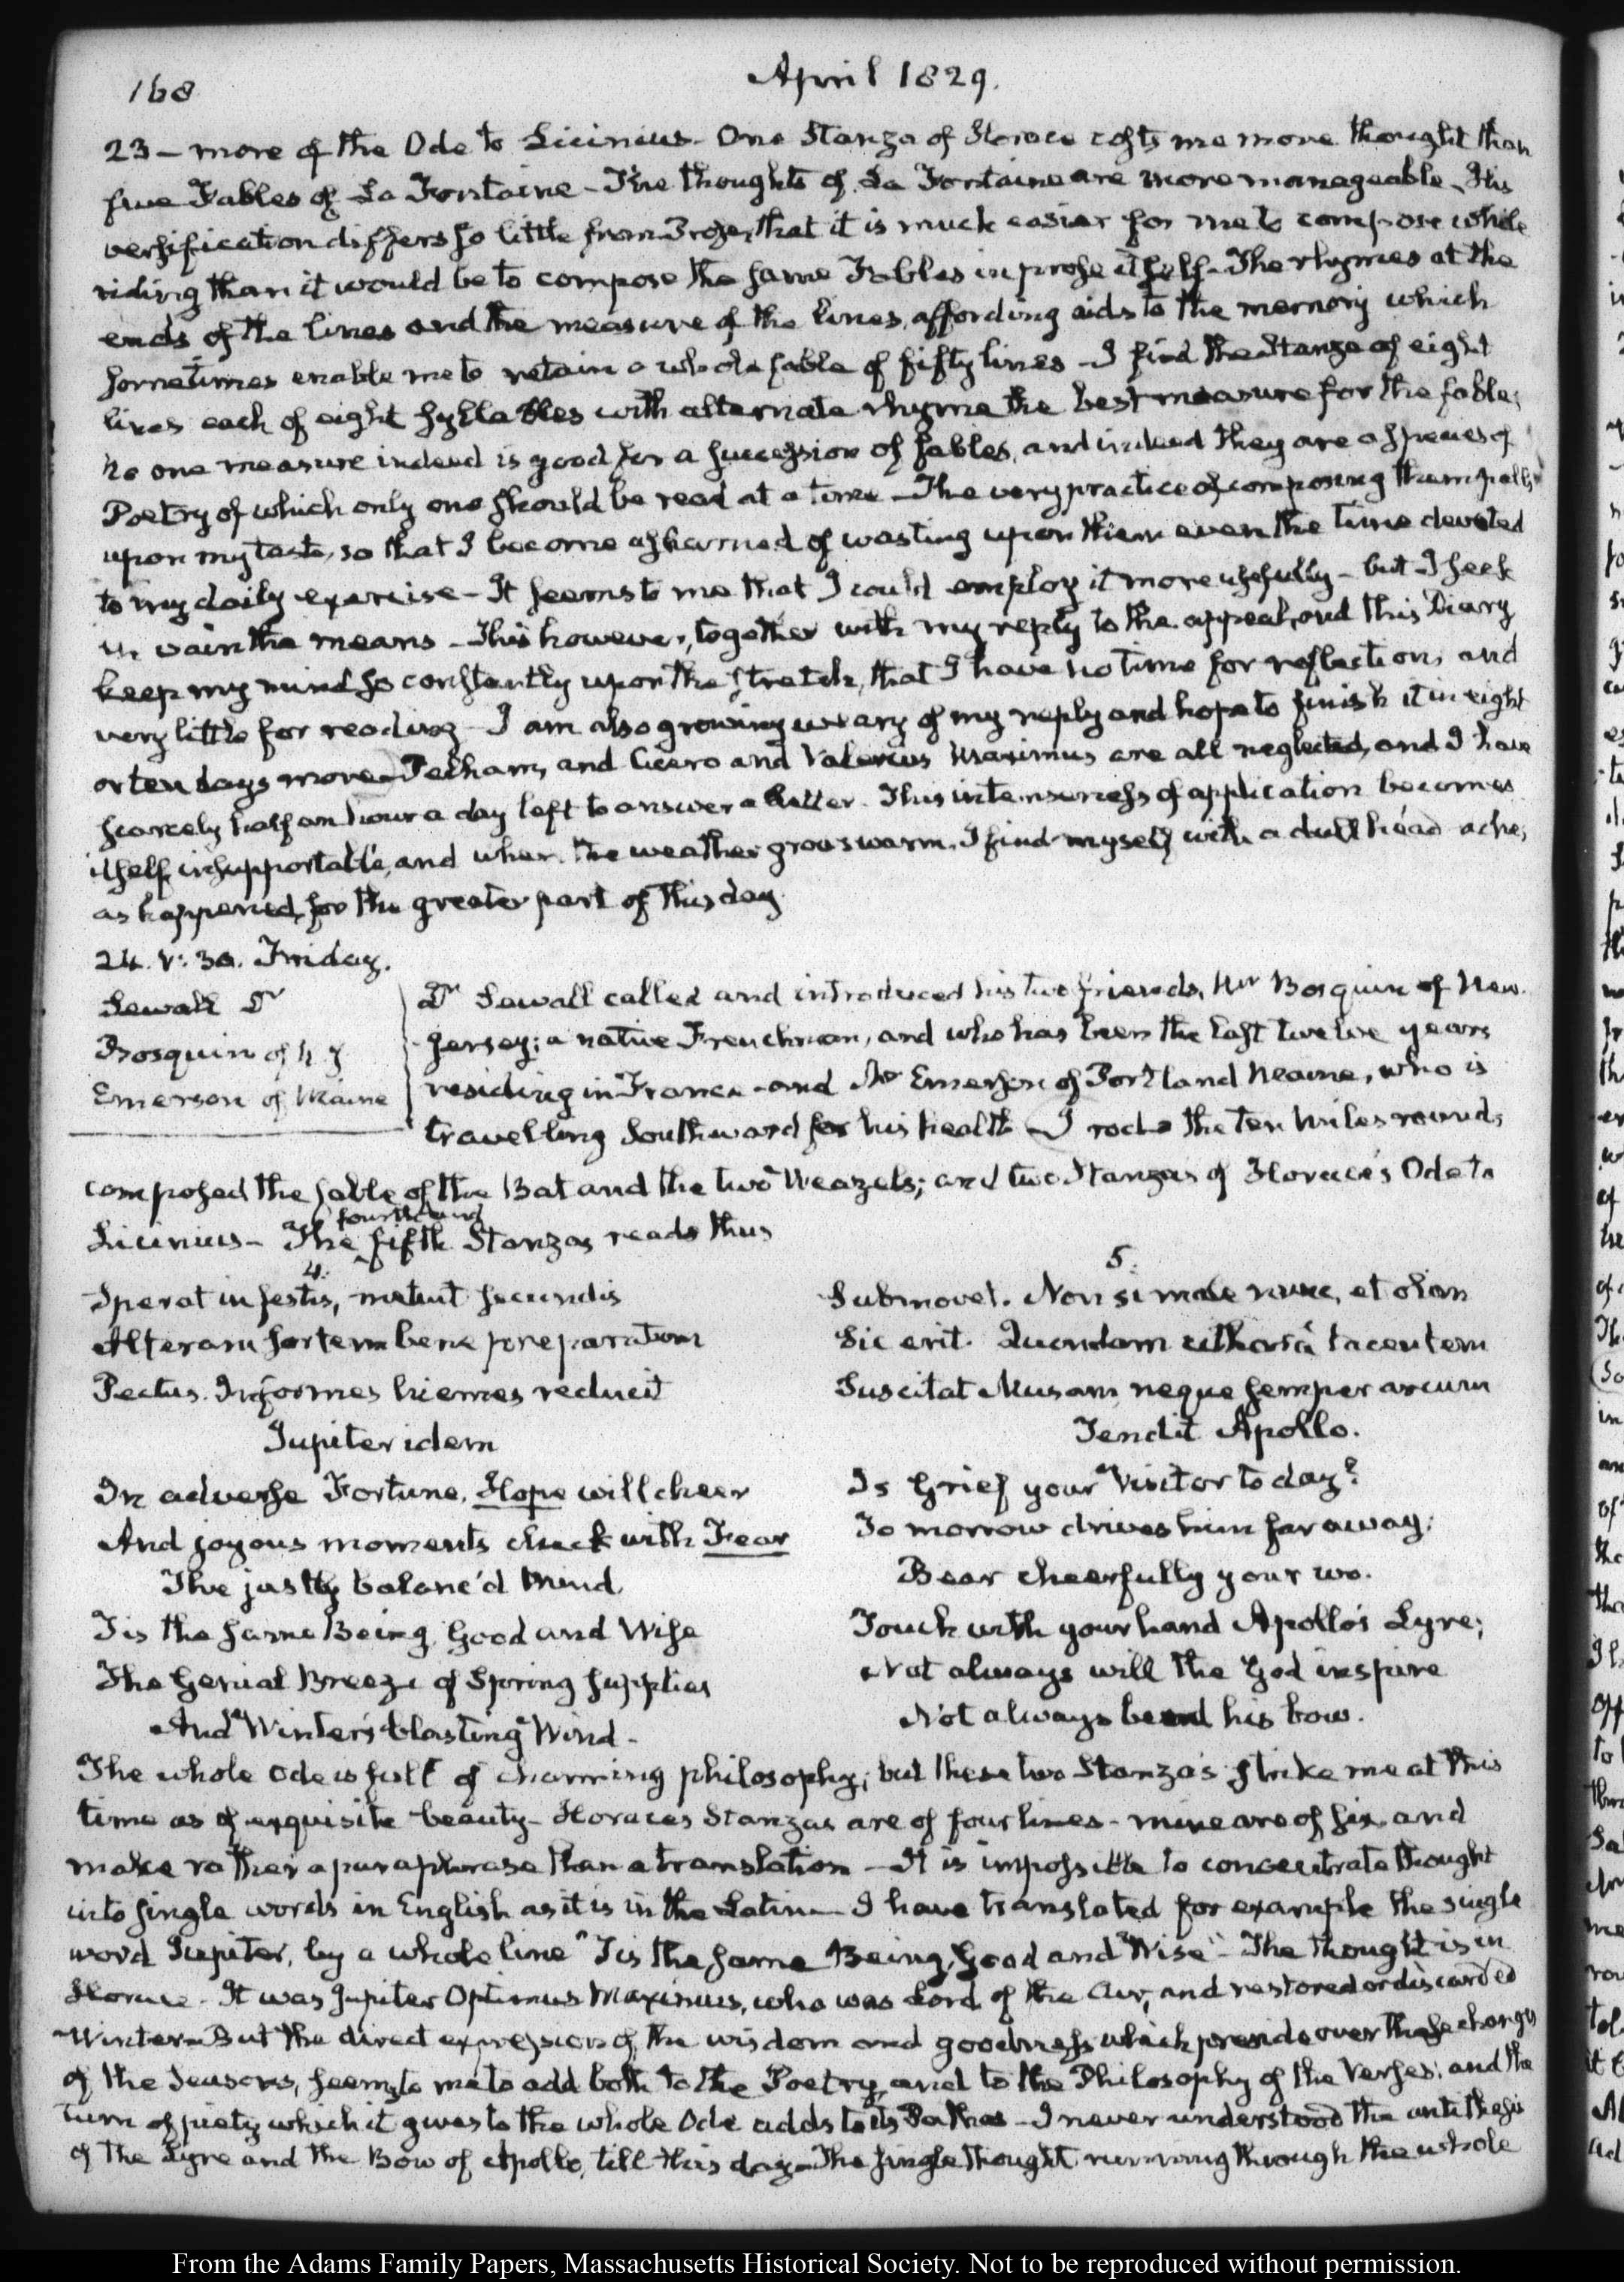 168
April 1829.
23 – more of the Ode to Licinius – One Stanza of Horace costs me more thought than
five Fables of La Fontaine – The thoughts of La Fontaine are more manageable – His
versification differs so little from Prose, that it is much easier for me to compose while
riding than it would be to compose the same Fables in prose itself – The rhymes at the
ends of the lines and the measure of the lines, affording aids to the memory which
sometimes enable me to retain a whole fable of fifty lines – I find the Stanza of eight
lines each of eight syllables with alternate rhyme the best measure for the fable;
no one measure indeed is good for a succession of fables, and indeed they are a species of
Poetry of which only one should be read at a time – The very practice of composing them palls
upon my taste, so that I become ashamed of wasting upon them even the time devoted
to my daily exercise – It seems to me that I could employ it more usefully – but I seek
in vain the means – This however, together with my reply to the appeal, and this Diary
keep my mind so constantly upon the stretch, that I have no time for reflection, and
very little for reading – I am also growing weary of my reply and hope to finish it in eight
or ten days more – Pelham, and Cicero and Valerius Maximus are all neglected, and I have
scarcely half an hour a day left to answer a Letter. This intenseness of application becomes
itself insupportable, and when the weather grows warm, I find myself with a dull head ache,
as happened for the greater part of this day.
24. V: 30. Friday.
Sewall Dr
Bosquin of N. J
Emerson of Maine
Dr Sewall called and introduced his two friends, Mr Bosquin of New
Jersey; a native Frenchman, and who has been the last twelve years
residing in France – and Mr Emerson of Portland Maine, who is
travelling Southward for his health – I rode the ten miles round,
composed the fable of the Bat and the two Weazels; and two Stanzas of Horace's Ode to
fourth and
Licinius – The fifth Stanzas reads thus
4.
Sperat infestis, metuit secundis
Alteram sortem bene preparatum
Pectus. Informes hiemes reducit
Jupiter idem
In adverse Fortune, Hope will cheer
And joyous moments check with Fear
The justly balanc'd Mind
Tis the same Being, Good and Wise
The Genial Breeze of Spring supplies
And Winter's blasting Wind –
5.
Submovet. Non si male nunc, et olim
Sic erit. Quondam citharâ tacentem
Suscitat Musam, neque semper arcum
Tendit Apollo.
Is Grief your Visitor to day?
To morrow drives him far away;
Bear cheerfully your wo.
Touch with your hand Apollo's Lyre;
Not always will the God inspire
Not always bend his bow.
The whole Ode is full of charming philosophy; but these two Stanza's strike me at this
time as of exquisite beauty – Horaces Stanzas are of four lines – mine are of six, and
make rather a paraphrase than a translation – It is impossible to concentrate thought
into single words in English as it is in the Latin – I have translated for example the single
word Jupiter, by a whole line "Tis the same Being, Good and Wise" – The thought is in
Horace – It was Jupiter Optimus Maximus, who was Lord of the Air, and restored or discarded
Winter – But the direct expression of the wisdom and goodness which preside over these changes
of the Seasons, seems to me to add both to the Poetry and to the Philosophy of the Verses; and the
turn of piety which it gives to the whole Ode adds to its Pathos – I never understood the antithesis
of the Lyre and the Bow of Apollo, till this day – The single thought running through the whole
From the Adams Family Papers, Massachusetts Historical Society. Not to be reproduced without permission.